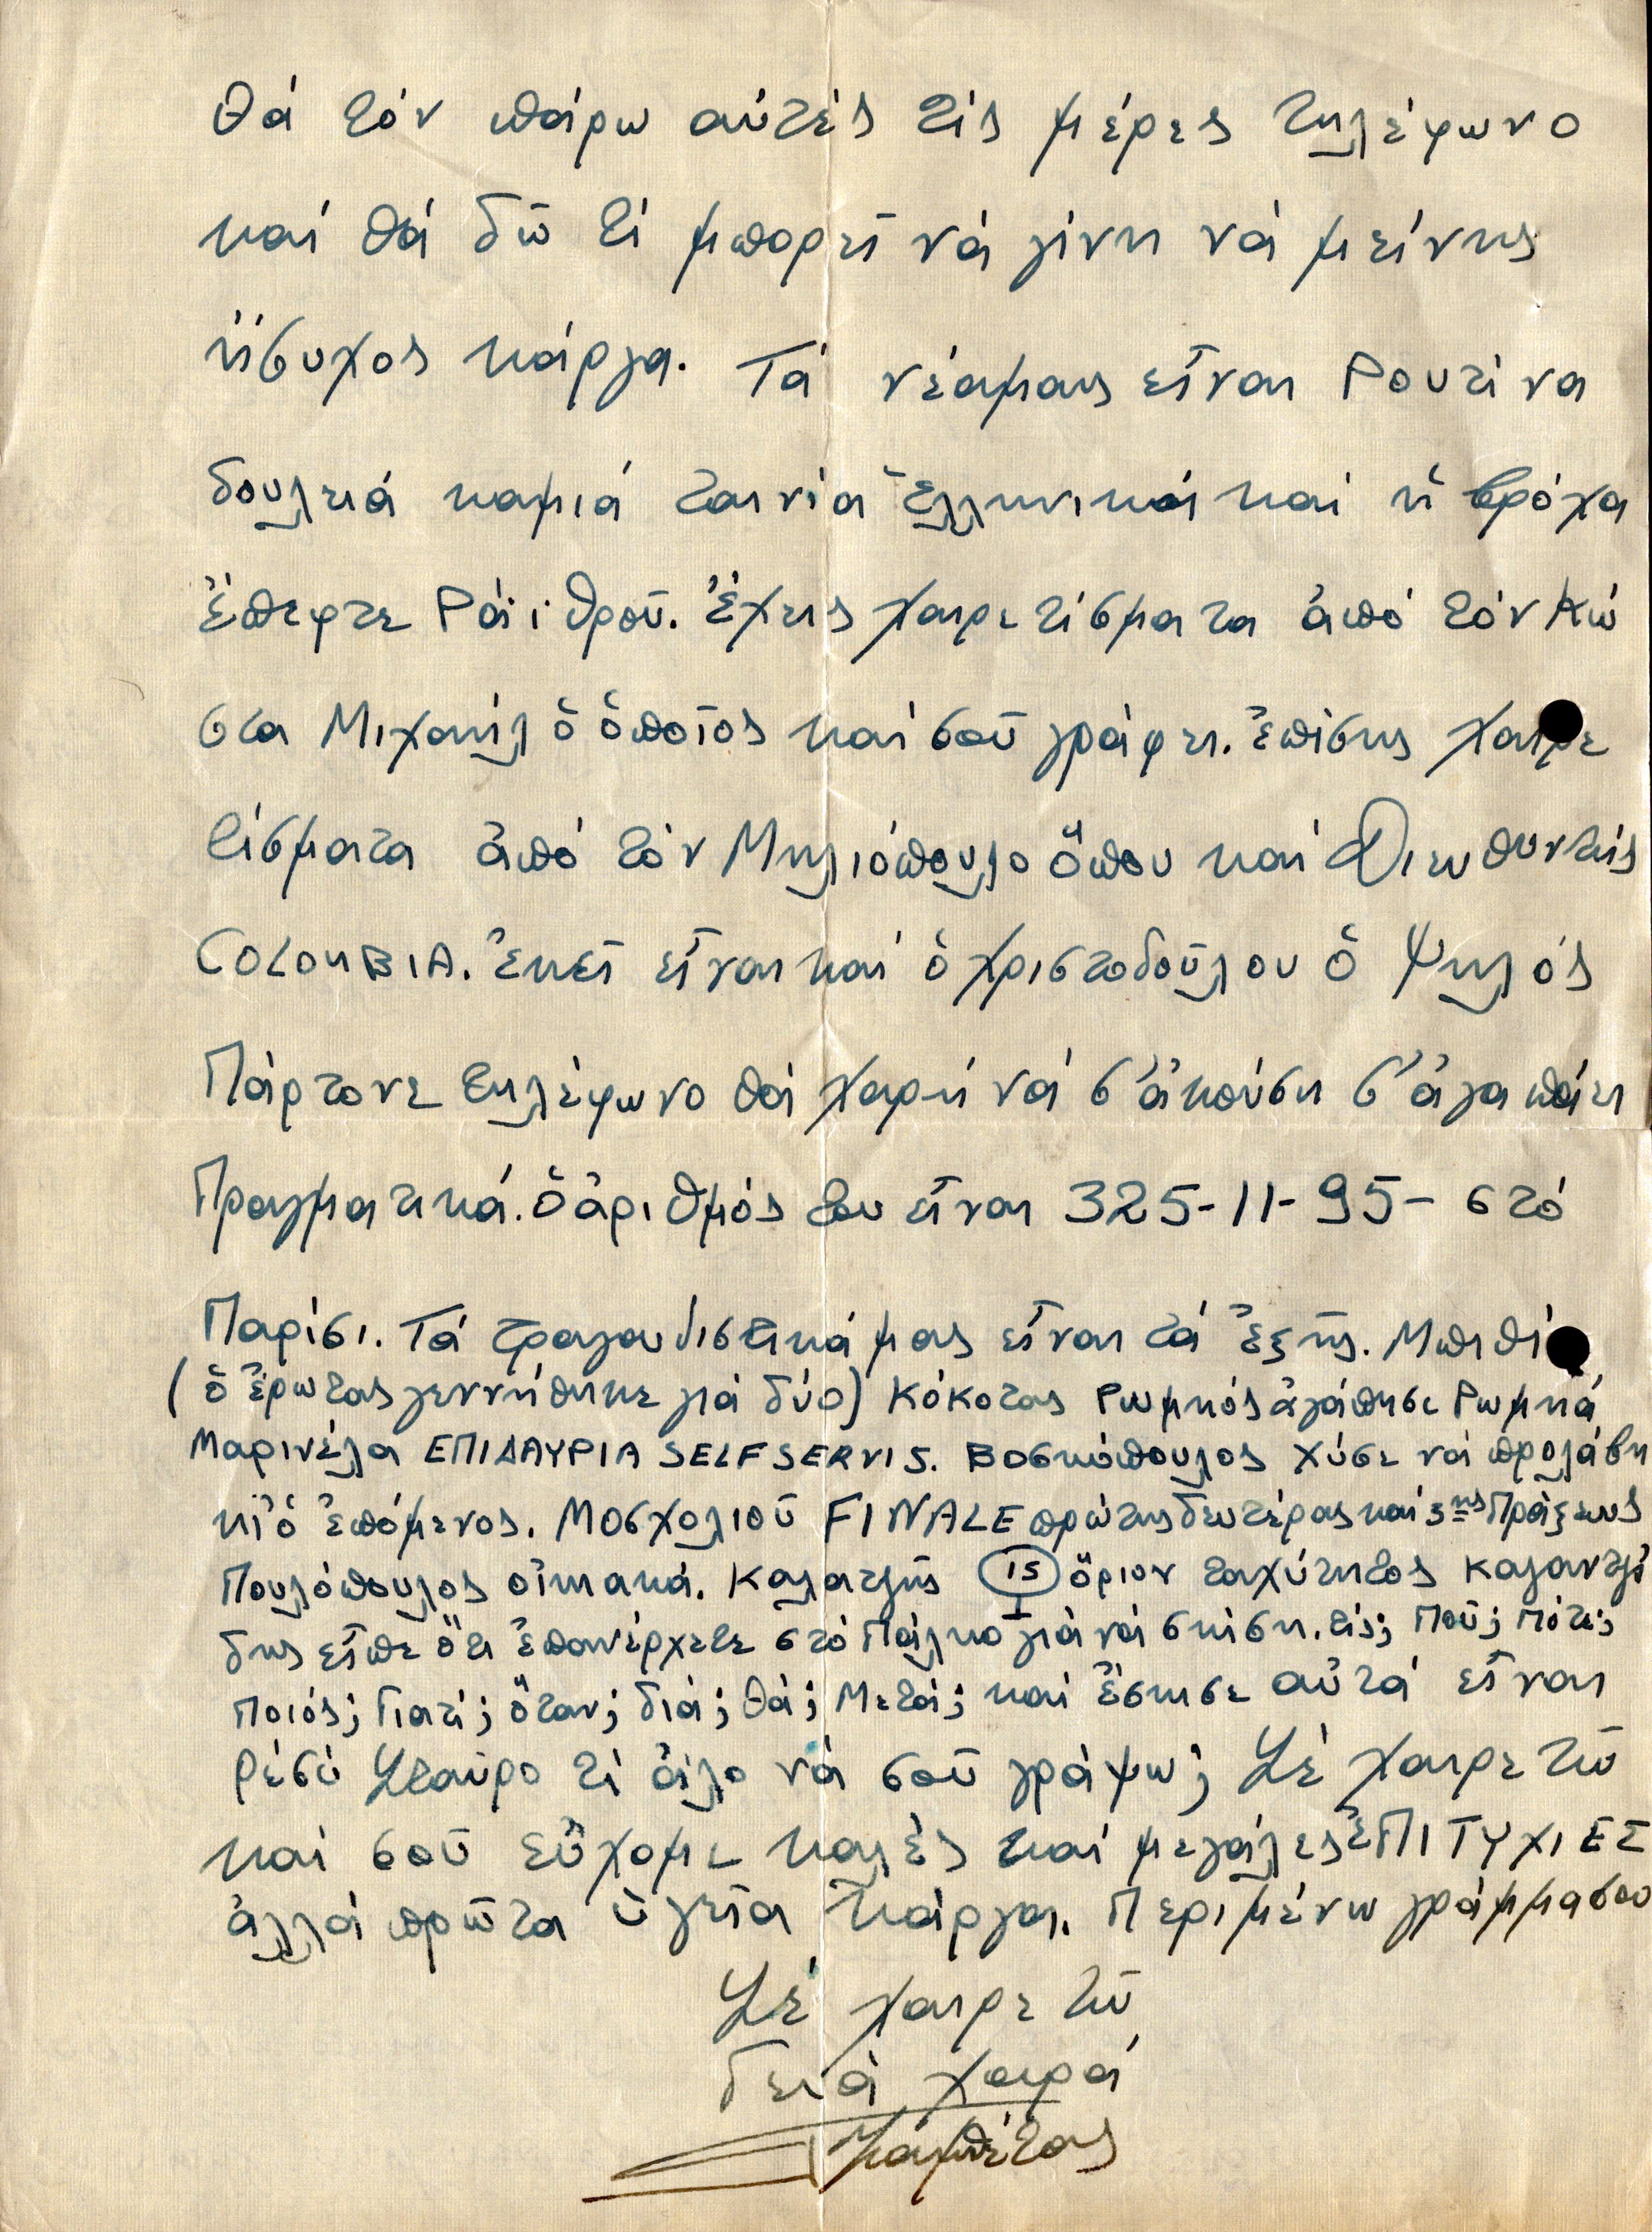 θά τόν πάρω αὐτές τίς μέρες τηλέφωνο
καί θά δῶ τί μπορεῖ νά γίνη νά μείνης
ἥσυχος κάργα. Τά νέαμας εἶναι Ρουτίνα
δουλειά καμιά ταινία ἑλληνικά καί ἡ βρόχα
ἔπεφτε Ράϊ θροῦ. ἔχεις χαιρετίσματα ἀπό τόν Κώ
στα Μιχαήλ ὁ ὁποῖος καί σοῦ γράφει. ἐπίσης χαιρε
τίσματα ἀπό τόν Μηλιόπουλο ὅπου καί Διευθυντής
COLOUBIA. ἐκεῖ εἶναι καί ὁ χριστοδούλου ὁ Ψηλός
Πάρτονε τηλέφωνο θά χαρή νά σ'ἀκούση σ'ἀγαπάει
Πραγματικά. ὁ ἀριθμός του εἶναι 325-11-95- στό
Παρίσι. Τά τραγουδιστικά μας εἶναι τά ἑξῆς. Μπιθι
(ὁ ἔρωτας γεννήθηκε γιά δύο) Κόκοτας Ρωμηός ἀγάπησε Ρωμηά
Μαρινέλα ΕΠΙΔΑΥΡΙΑ SELF SERVIS. Βοσκόπουλος χύσε νά προλάβη
κι ὁ ἑπόμενος. Μοσχολιοῦ FINALE πρώτης δευτέρας καί 3ης Πράξεως
Πουλόπουλος οἰκιακά. Καλατζῆς 15 ὅριον ταχύτητος Καλαντζί
δης εἶπε ὅτι ἐπανέρχετε στό Πάλκο γιά νά σκίση. τίς; Ποῦ; Πότε;
Ποιός; Γιατί; ὅταν; διά; θά; Μετά; καί ἔσκισε αὐτά εἶναι
ρέσύ Σταῦρο τί ἄλο νά σοῦ γράψω; Σέ χαιρετῶ
καί σοῦ εὔχομε καλές καί μεγάλες ἐΠΙΤΥΧΙΕΣ
ἀλλά πρῶτα ὑγεῖα κάργα. Περιμένω γράμμα σου
Σέ χαιρετῶ
Γειά χαρά